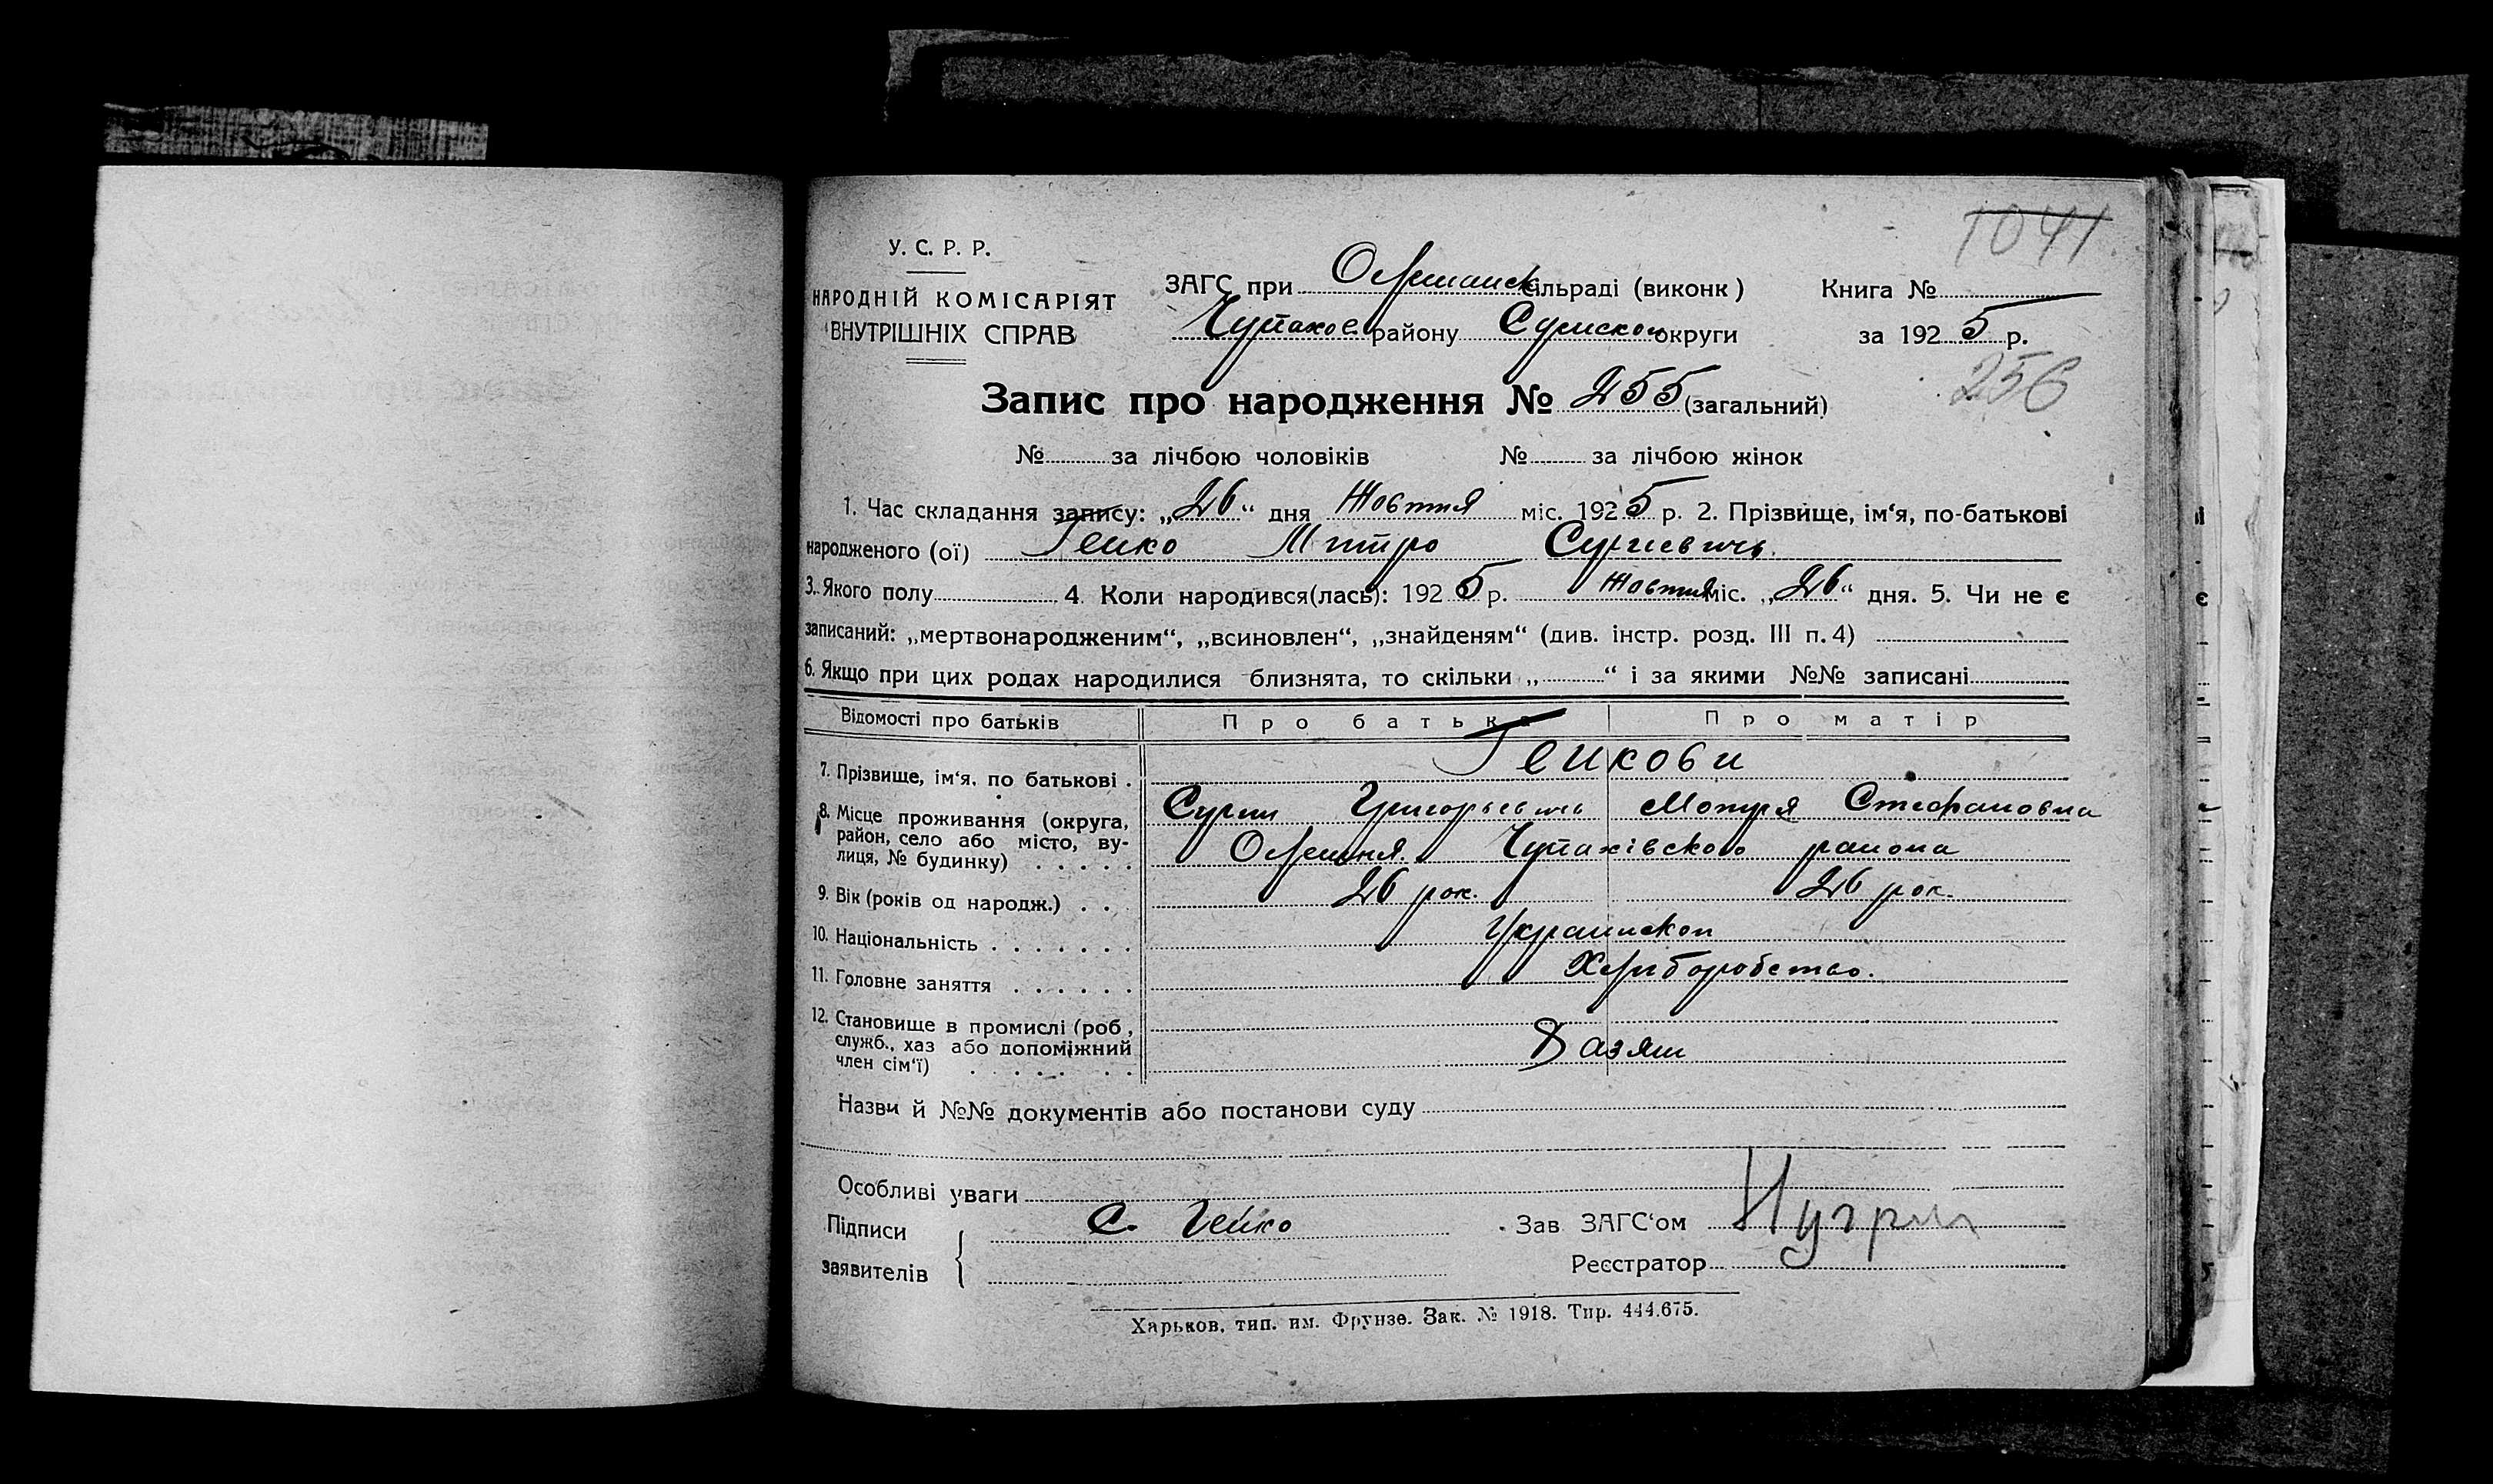 1041
У. С. Р. Р.
НАРОДНІЙ КОМІСАРІЯТ
ВНУТРІШНІХ СПРАВ
ЗАГС при Олешанск сільраді (виконк)
Чупахов району Сумскои округи
Книга №
за 1925 р.
256
Запис про народження № 255 (загальний)
№ за лічбою чоловіків № за лічбою жінок
1. Час складання запису: „26“ дня Жовтня міс. 1925 р. 2. Прізвище, ім‘я, по-батькові
народженого (ої) Гейко Митро Сургиевичь
3. Якого полу 4. Коли народився(лась): 1925 р. Жовтня міс. „26“ дня. 5. Чи не є
записаний: „мертвонародженим“, „всиновлен“, „знайденям“ (див. інстр. розд. III п. 4)
6. Якщо при цих родах народилися близнята, то скільки „ “ і за якими №№ записані
Відомості про батьків Про батька Про матір
7. Прізвище, ім‘я, по батькові . Гейкови
Сургий Григорьевичь Мотря Стефановна
8. Місце проживання (округа, район, село або місто, вулиця, № будинку) . . . . . Олешня. Чупахівского района
9. Вік (років од народж.) . . 26 рок. 26 рок.
10. Національність . . . . . . . Украинскои
11. Головне заняття . . . . . . Хлиборобство.
12. Становище в промислі (роб., служб., хаз або допоміжний член сім‘ї) . . . . . . Хазяин
Назви й №№ документів або постанови суду
Особливі уваги
Підписи заявителів { С. Гейко
Зав. ЗАГС‘ом
Реєстратор
Харьков, тип. им. Фрунзе. Зак. № 1918. Тир. 444.675.